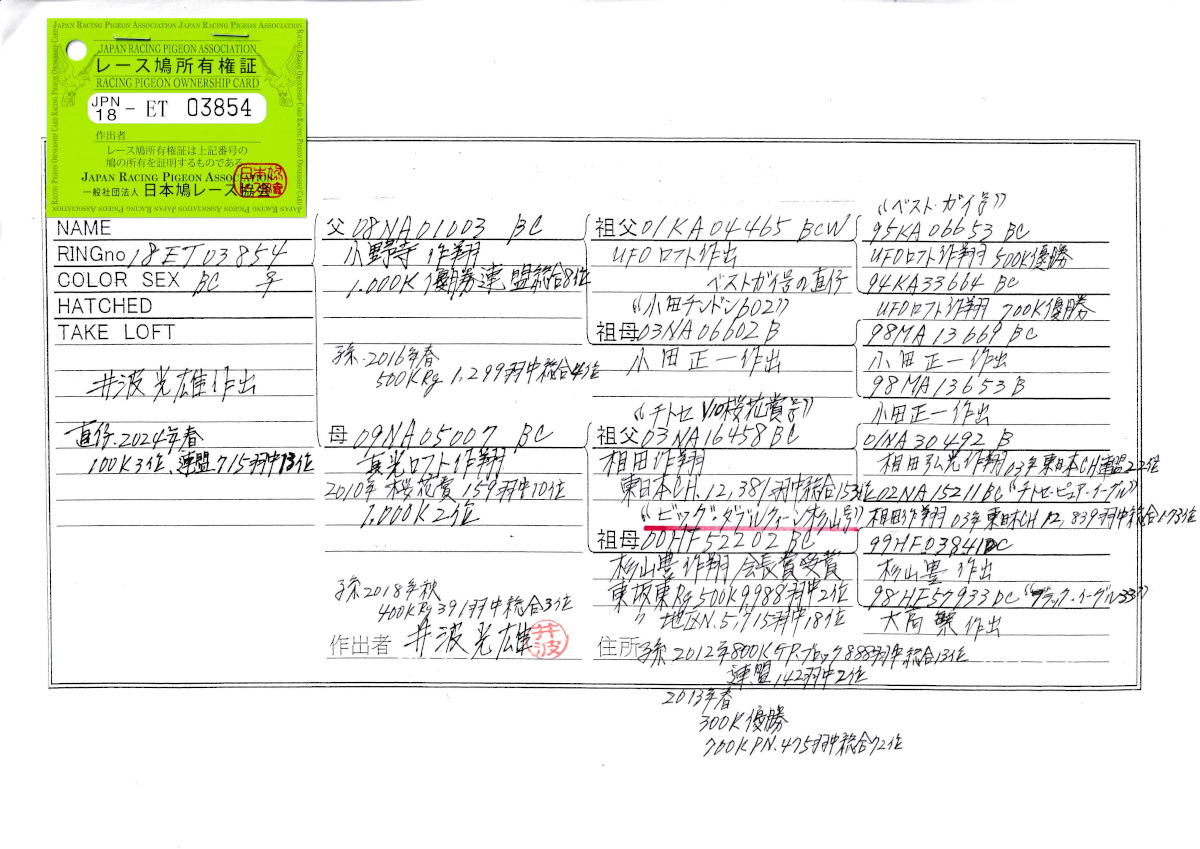 JAPAN RACING PIGEON ASSOCIATION JAPAN RACING PIGEON ASSOCIATION
JAPAN RACING PIGEON ASSOCIATION
レース鳩所有権証
RACING PIGEON OWNERSHIP CARD
JPN 18 - ET 03854
作出者
レース鳩所有権証は上記番号の
鳩の所有を証明するものである
JAPAN RACING PIGEON ASSOCIATION
一般社団法人 日本鳩レース協会
NAME
RINGno 18ET03854
COLOR SEX BC ♀
HATCHED
TAKE LOFT
井波光雄作出
直仔.2024年春
100K3位、連盟715羽中13位
父 08NA01003 BC
小野寺 作翔
1.000K優勝連盟総合8位
孫.2016年春
500KRg 1.299羽中総合4位
母 09NA05007 BC
真光ロフト作翔
2010年 桜花賞159羽中10位
1.000K2位
孫2018年秋
400KRg391羽中総合3位
作出者 井波光雄
井波
祖父01KA04465 BCW
UFOロフト作出
ベストガイ号の直仔
“小田チンドン602”
祖母03NA06602B
小田正一作出
“チトセV10桜花賞号”
祖父03NA16458BC
相田作翔
東日本CH.12,381羽中総合153位
“ビッグ・ダブルクィーン杉山号”
祖母00HF52202 BC
杉山豊作翔 会長賞受賞
東坂東Rg500K9,988羽中2位
〃 地区N.5,715羽中18位
住所 孫 2012年800KGPブロック888羽中総合13位
連盟142羽中2位
2013年春
300K優勝
700KPN.475羽中総合72位
“ベスト・ガイ号”
95KA06653 BC
UFOロフト作翔500K優勝
94KA33664 BC
UFOロフト作翔 700K優勝
98MA13669 BC
小田正一作出
98MA13653B
小田正一作出
01NA30492 B
相田弘光作翔03年東日本CH連盟22位
02NA15211BC “チトセ・ピュアー・イーグル”
相田作翔03年東日本CH12,839羽中総合173位
99HF03841DC
杉山豊 作出
98HF57933DC “ブラック・イーグル33”
大高繁作出